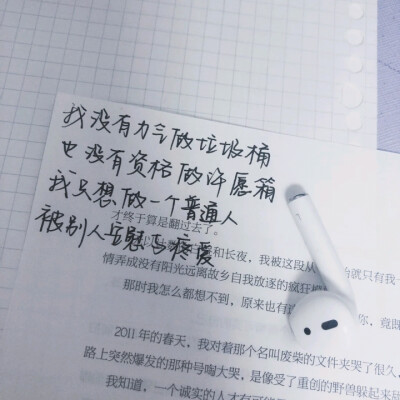 我没有力气做垃圾桶
也没有资格做许愿箱
我只想做一个普通人
被别人安慰与疼爱
才终于算是翻过去了。
和长夜，我被这段从
就只有我一
情弄成没有阳光远离故乡自我放逐的疯狂
那时我怎么都想不到，原来也有
你，竟
2011年的春天，我对着那个名叫废柴的文件夹哭了很久，
路上突然爆发的那种号啕大哭，是像受了重创的野兽躲起来
我知道，一个诚实的人才有可能